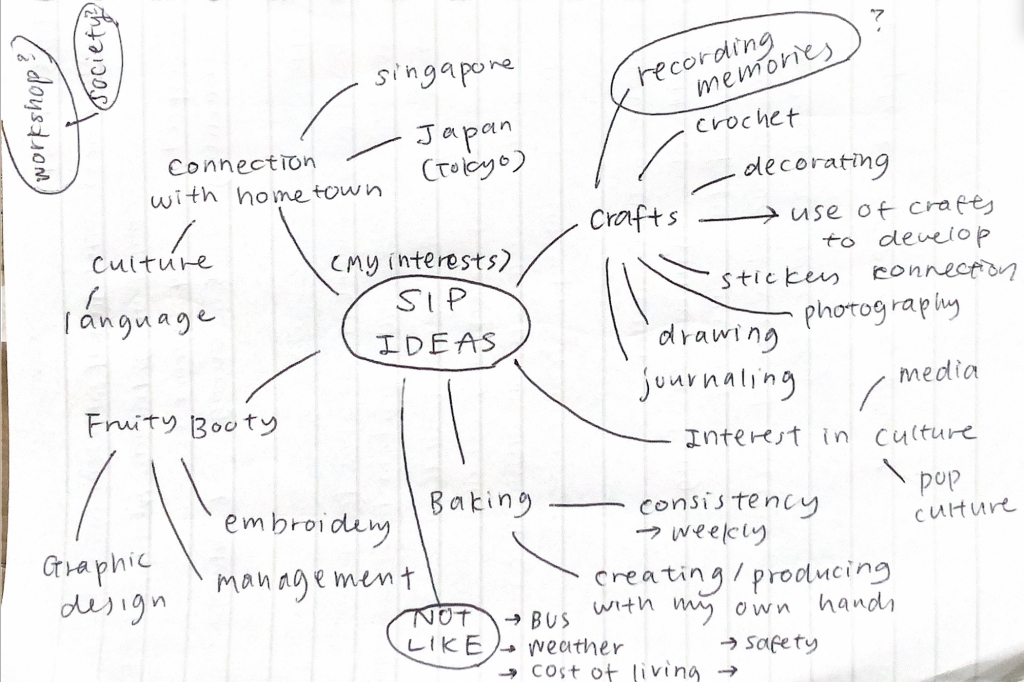 workshop?
society?
connection
with hometown
singapore
Japan
(Tokyo)
culture
language
(My interests)
SIP
IDEAS
recording
memories
?
crochet
decorating
crafts
→ use of crafts
to develop
connection
sticker
photography
drawing
journaling
Interest in culture
media
pop
culture
Fruity Booty
Graphic
design
embroidery
management
Baking
consistency
→ weekly
creating/producing
with my own hands
NOT
LIKE
→ BUS
→ weather
→ safety
→ cost of living →